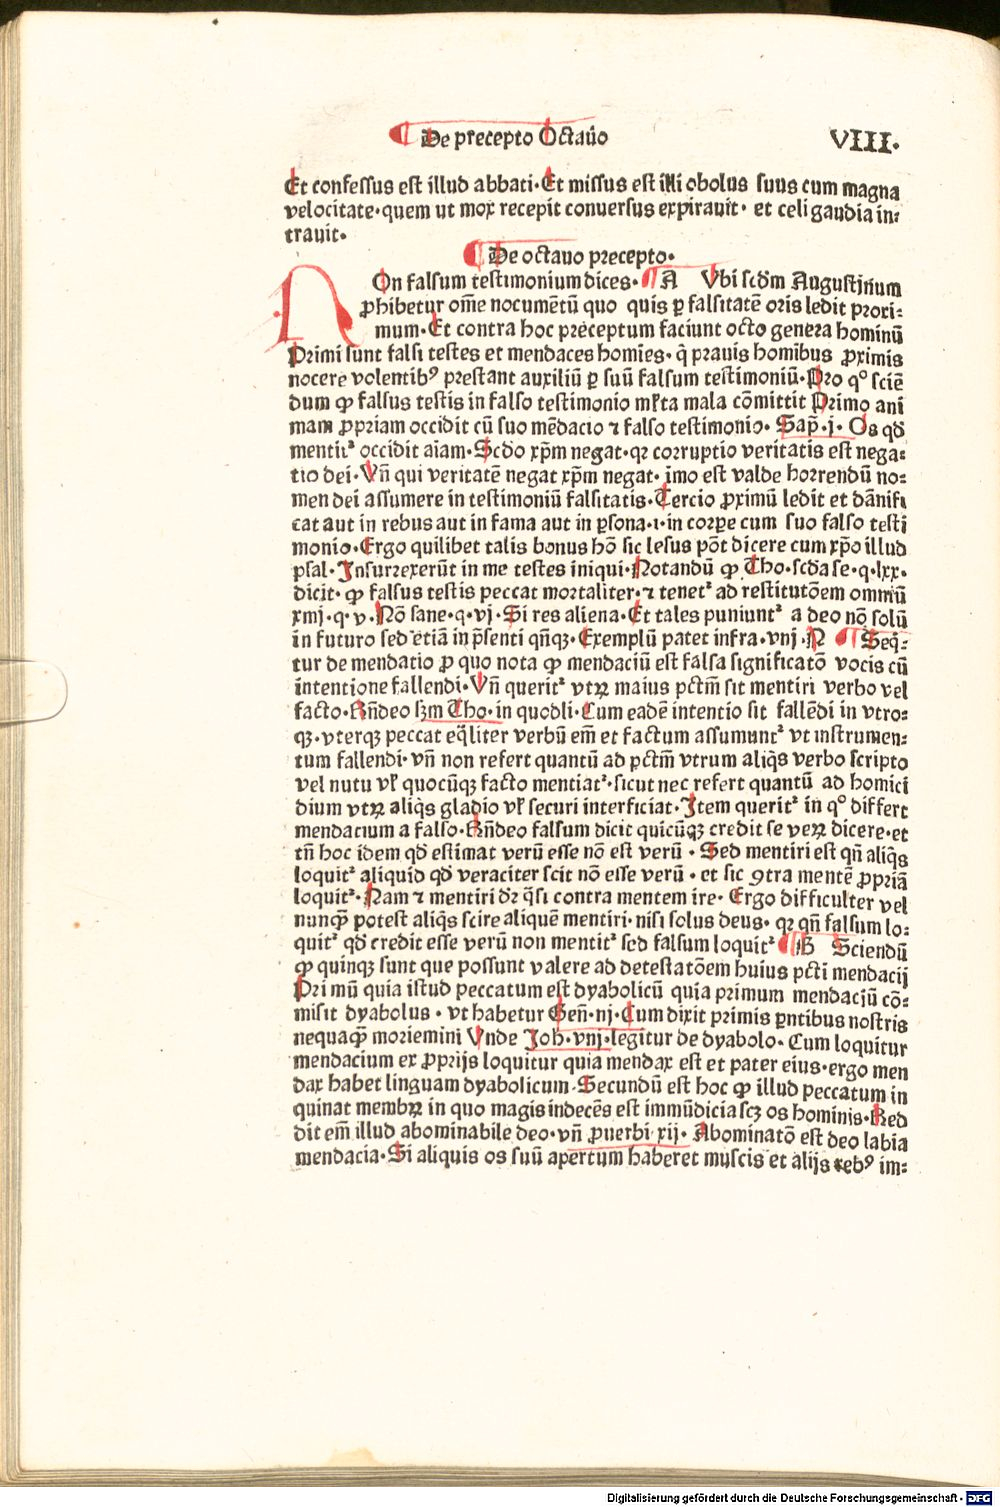 De precepto Octauo VIII.
Et confessus est illud abbati. Et missus est illi obolus suus cum magna
velocitate. quem ut mox recepit conuersus expirauit. et celi gaudia in⸗
trauit.
De octauo precepto.
NOn falsum testimonium dices. A Vbi scdm Augustinum
ꝓhibetur om̄e nocumētū quo quis ꝑ falsitatē oris ledit proxi⸗
mum. Et contra hoc preceptum faciunt octo genera hominū
Primi sunt falsi testes et mendaces homies. q̄ prauis homībus ꝓximis
nocere volentibꝰ prestant auxiliū ꝑ suū falsum testimoniū. Pro qº sciē
dum ꝙ falsus testis in falso testimonio ml̓ta mala cōmittit Primo ani
mam ꝓpriam occidit cū suo mēdacio ⁊ falso testimonio. Sap̄. j. Os qd̄
mentit᷑ occidit aīam. Scdo xp̄m negat. qꝛ corruptio veritatis est nega⸗
tio dei. Vn̄ qui veritatē negat xp̄m negat. jmo est valde horrendū no⸗
men dei assumere in testimoniū falsitatis. Tercio ꝓximū ledit et dānifi
cat aut in rebus aut in fama aut in ꝑsona. ı. in corꝑe cum suo falso testi
monio. Ergo quilibet talis bonus hō sic lesus pōt dicere cum xp̄o illud
psal. Jnsurrexerūt in me testes iniqui. Notandū ꝙ Tho. scda se. q. lxx.
dicit. ꝙ falsus testis peccat mortaliter. ⁊ tenet᷑ ad restitutōem omniū
xiiij. q. v. Nō sane. q. vj. Si res aliena. Et tales puniunt᷑ a deo nō solū
in futuro sed etiā in p̄senti qn̄qꝫ. Exemplū patet infra. viij. N Seq̄⸗
tur de mendatio ꝓ quo nota ꝙ mendaciū est falsa significatō vocis cū
intentione fallendi. Vn̄ querit᷑ vtꝝ maius pctm̄ sit mentiri verbo vel
facto. Rn̄deo sꝫm Tho. in quodli. Cum eadē intentio sit fallēdi in vtro⸗
qꝫ. vterqꝫ peccat eq̄liter verbū em̄ et factum assumunt᷑ vt instrumen⸗
tum fallendi. vn̄ non refert quantū ad pctm̄ vtrum aliq̄s verbo scripto
vel nutu vl̓ quocūqꝫ facto mentiat᷑. sicut nec refert quantū ad homici
dium vtꝝ aliq̄s gladio vl̓ securi interficiat. Jtem querit᷑ in qº differt
mendacium a falso. Rn̄deo falsum dicit quicūqꝫ credit se veꝝ dicere. et
tn̄ hoc idem qd̄ estimat verū esse nō est verū. Sed mentiri est qn̄ aliq̄s
loquit᷑ aliquid qd̄ veraciter scit nō esse verū. et sic ꝯtra mentē ꝓpriā
loquit᷑. Nam ⁊ mentiri dr̄ q̄si contra mentem ire. Ergo difficulter vel
nunqꝫ̄ potest aliq̄s scire aliquē mentiri. nisi solus deus. qꝛ qn̄ falsum lo⸗
quit᷑ qd̄ credit esse verū non mentit᷑ sed falsum loquit᷑ B Sciendū
ꝙ quinqꝫ sunt que possunt valere ad detestatōem huius pcti mendacij
Primū quia istud peccatum est dyabolicū quia primum mendaciū cō⸗
misit dyabolus. vt habetur Gen̄. iij. Cum dixit primis ꝑntibus nostris
nequaqꝫ̄ moriemini Vnde Joh. viij. legitur de dyabolo. Cum loquitur
mendacium ex ꝓprijs loquitur quia mendax est et pater eius. ergo men
dax habet linguam dyabolicum. Secundū est hoc ꝙ illud peccatum in
quinat membꝝ in quo magis indecēs est immūdicia scꝫ os hominis. Red
dit em̄ illud abominabile deo. vn̄ ꝓuerbi xij. Abominatō est deo labia
mendacia. Si aliquis os suū apertum haberet muscis et alijs rebꝰ im⸗
Digitalisierung gefördert durch die Deutsche Forschungsgemeinschaft - DFG